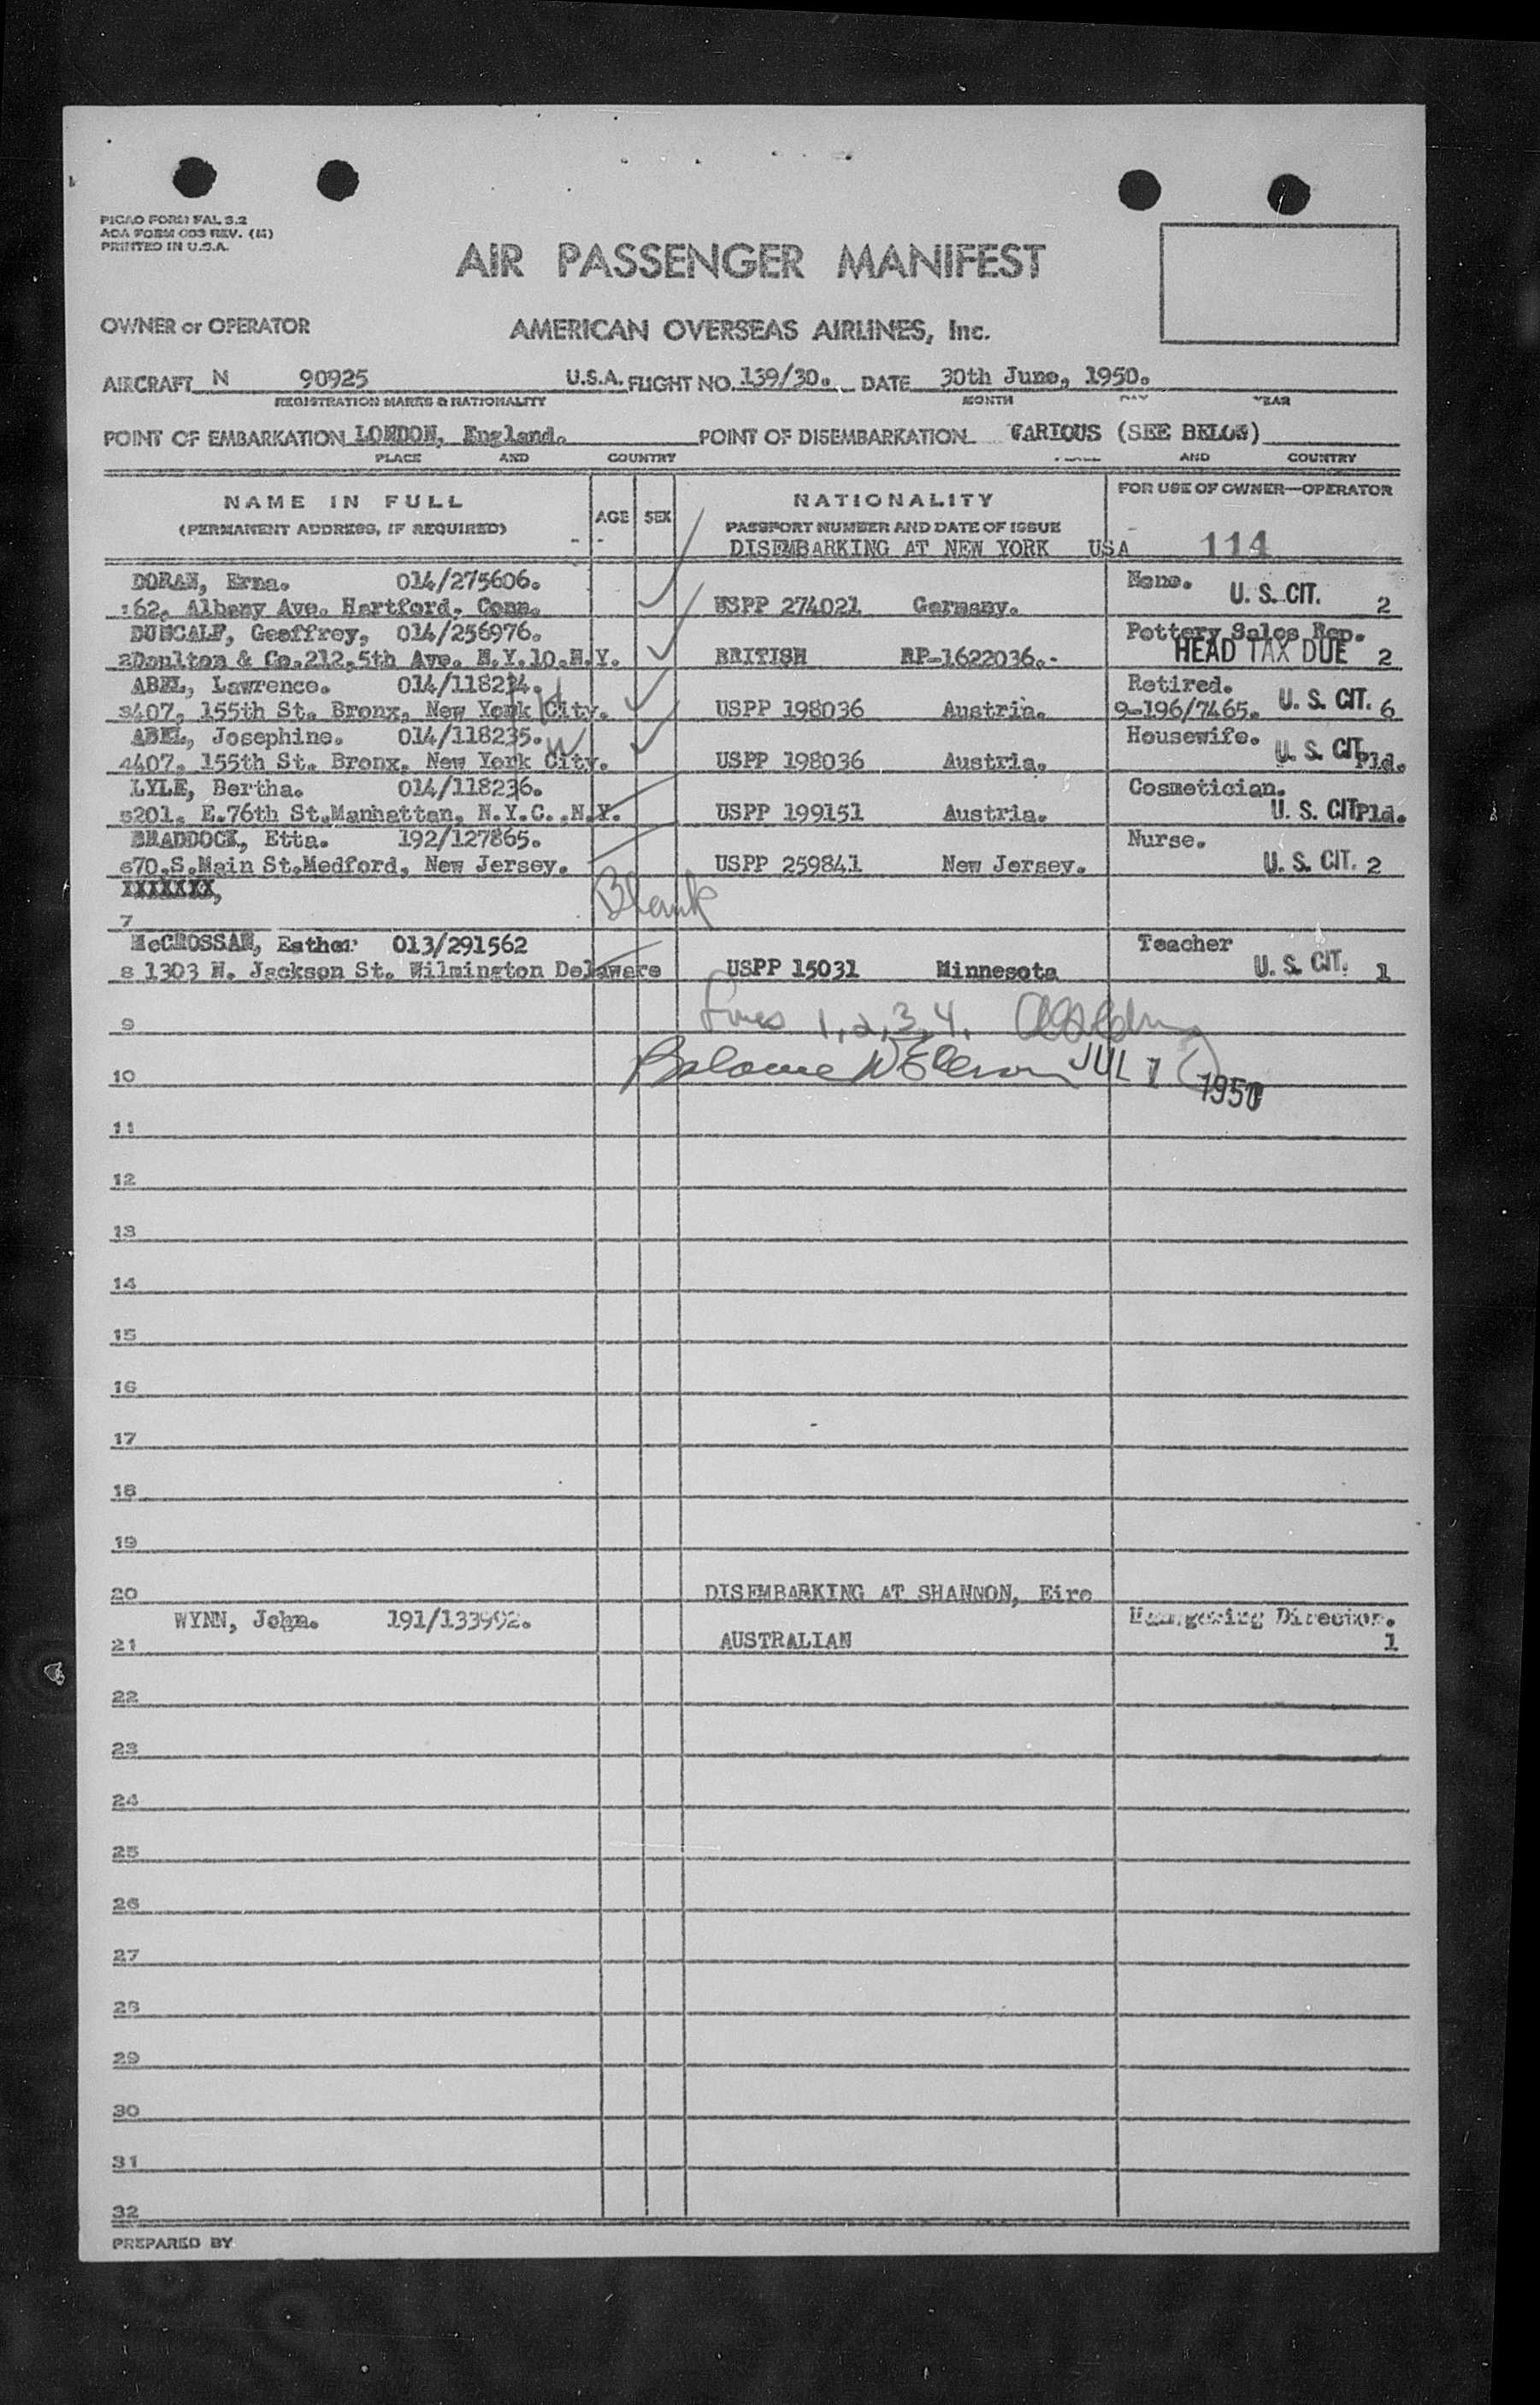 PICAO FORM FAL 3.2
AOA FORM 003 REV. (M)
PRINTED IN U.S.A.
AIR PASSENGER MANIFEST
OWNER or OPERATOR AMERICAN OVERSEAS AIRLINES, Inc.
AIRCRAFT N 90925 U.S.A. FLIGHT NO. 139/30. DATE 30th June, 1950.
REGISTRATION MARKS & NATIONALITY MONTH DAY YEAR
POINT OF EMBARKATION LONDON, England. POINT OF DISEMBARKATION VARIOUS (SEE BELOW)
PLACE AND COUNTRY PLACE AND COUNTRY
NAME IN FULL AGE SEX NATIONALITY FOR USE OF OWNER—OPERATOR
(PERMANENT ADDRESS, IF REQUIRED) PASSPORT NUMBER AND DATE OF ISSUE
DISEMBARKING AT NEW YORK USA 114
DORAN, Erna. 014/275606. None. U. S. CIT.
162, Albany Ave. Hartford. Conn. USPP 274021 Germany. 2
DUNCALF, Geoffrey, 014/256976. Pottery Sales Rep.
2Doulton & Co.212,5th Ave. N.Y.10.N.Y. BRITISH RP-1622036.- HEAD TAX DUE 2
ABEL, Lawrence. 014/118234. H Retired.
3407, 155th St. Bronx, New York City. USPP 198036 Austria. 9-196/7465. U. S. CIT. 6
ABEL, Josephine. 014/118235. W Housewife.
4407, 155th St. Bronx, New York City. USPP 198036 Austria. U. S. CIT Pld.
LYLE, Bertha. 014/118236. Cosmetician.
5201, E.76th St.Manhattan, N.Y.C.,N.Y. USPP 199151 Austria. U. S. CIT Pld.
BRADDOCK, Etta. 192/127865. Nurse.
670,S.Main St.Medford, New Jersey. USPP 259841 New Jersey. U. S. CIT. 2
XXXXXXX,
7 Blank
McCROSSAN, Esther 013/291562 Teacher
8 1303 N. Jackson St. Wilmington Delaware USPP 15031 Minnesota U. S. CIT. 1
9 Lines 1, 2, 3, 4.
10 JUL 1 1950
11
12
13
14
15
16
17
18
19
20 DISEMBARKING AT SHANNON, Eire
WYNN, John. 191/133992. Director.
21 AUSTRALIAN 1
22
23
24
25
26
27
28
29
30
31
32
PREPARED BY